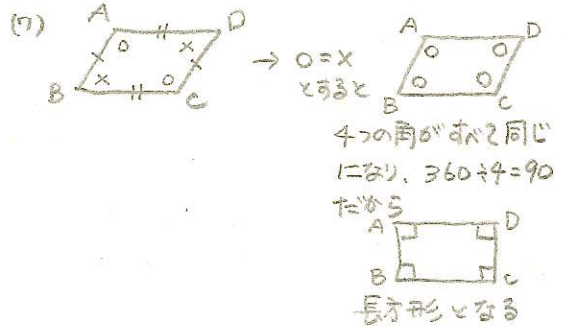 (7)
A D
B C
→ ○=×
とすると
A D
B C
4つの角がすべて同じ
になり、360÷4=90
だから
A D
B C
長方形となる